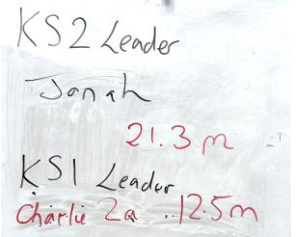 KS2 Leader
Jonah
21.3 m
KS1 Leader
Charlie 2a .12.5m